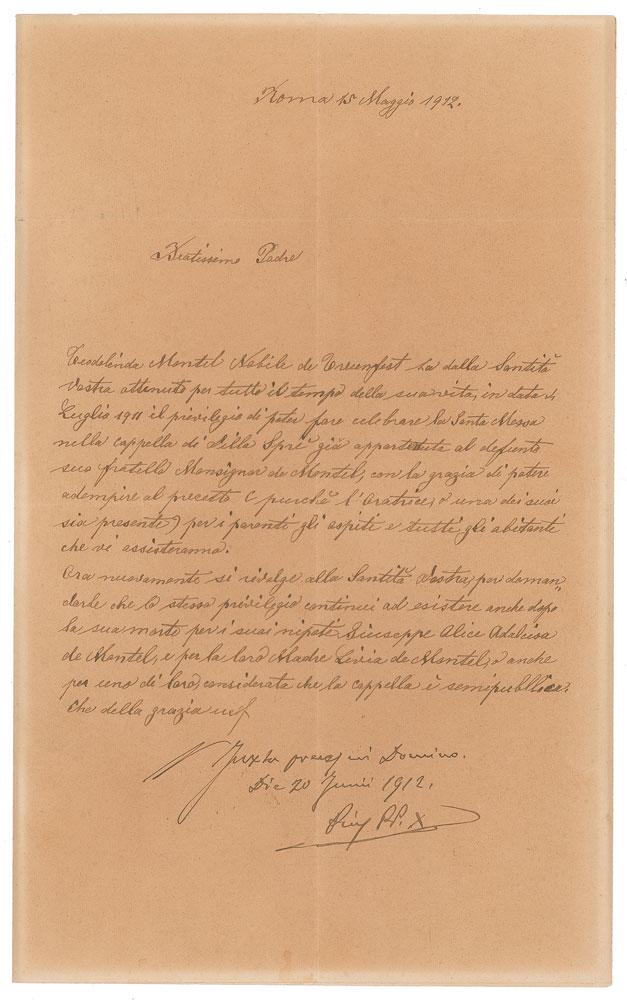 Roma 15 Maggio 1912.
Beatissimo Padre
Teodolinda Montel Nobile de Treuenfest ha dalla Santità
Vostra ottenuto per tutto il tempo della sua vita, in data 4
Luglio 1911 il privilegio di poter fare celebrare la Santa Messa
nella cappella di Villa Sprè già appartenuta al defunto
suo fratello Monsignor de Montel, con la grazia di potere
adempire al precetto (purchè l'Oratrice, o una dei suoi
sia presente) per i parenti gli ospiti e tutti gli abitanti
che vi assisteranno.
Ora nuovamente si rivolge alla Santità Vostra, per doman=
darle che lo stesso privilegio continui ad esistere anche dopo
la sua morte per i suoi nipoti Giuseppe Alice Adalcisa
de Montel, e per la loro Madre Livia de Montel, o anche
per uno di loro, considerato che la cappella è semipubblica.
Che della grazia
Juxta preces in Domino.
Die 20 Junii 1912.
Pius PP. X